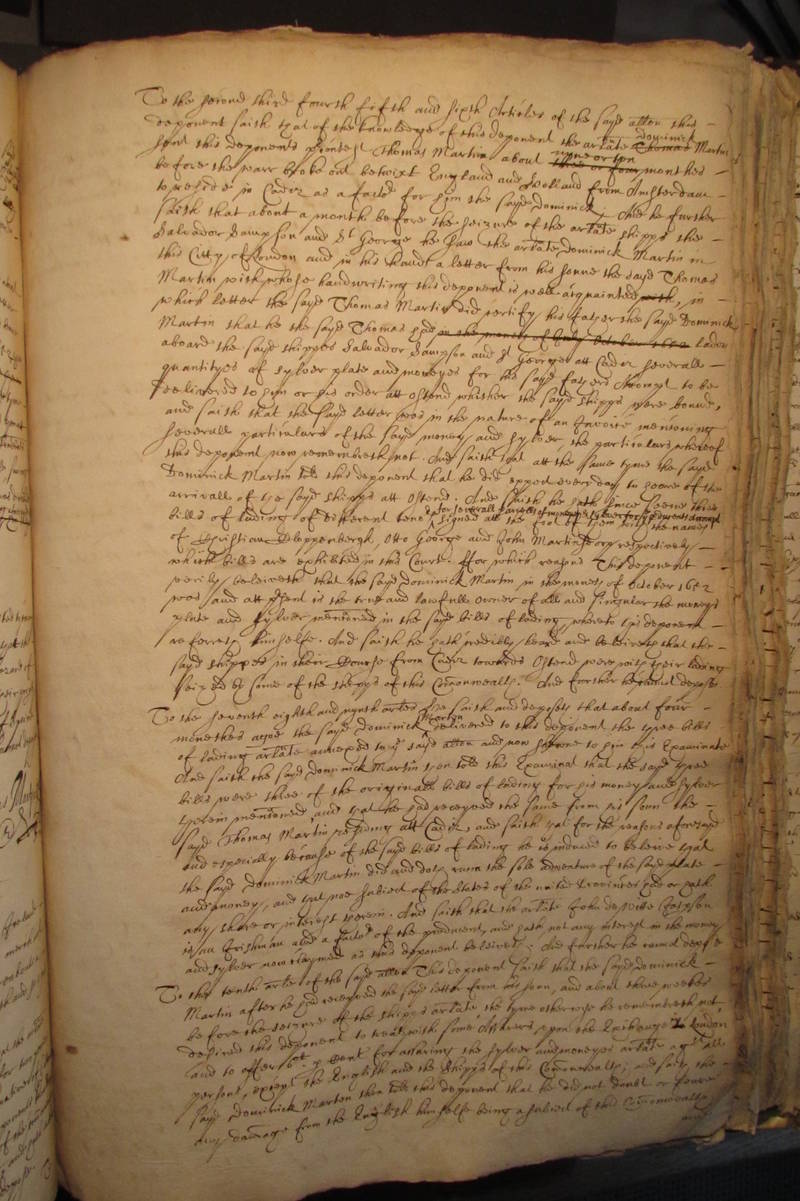 To the second third fourth fifth and sixth Articles of the sayd allon this
deponent saith that of the knowledge of this deponent the arlate Thomas dominick Martin
sent this deponents Thomas Martin about three or four nyne or ten monthes
before the warr broke out betwixt England and Holland from Amsterdam
to reside in Cadez as a factor for him the sayd dominick And he further
saith that about a month before the seizure of the arlate shipps the
Salvador Sampson and St George he saw the arlate Dominick Martin in
this Citty of London and in his hands a letter from his sonne the sayd Thomas
Martin with whose handwriting this deponent is well acquainted with, in
which letter the sayd Thomas Martin did certify his father the sayd Dominick
Martin that he the sayd Thomas had in the moneth of October 1652 laden
aboard the sayd shipps Salvador Sampson and St George att Cadez severall
quantityes of sylver plate and moneyes for his sayd fathers Accompt to be
delivered to him or his order att Ostend whither the sayd shipps were bound,
and saith that the sayd letter was in the nature of an Invoice mencioning
severall particulars of the sayd money and sylver, the particulars whereof
this deponent now remembreth not. And saith that att the same tyme the sayd
Dominick Martin told this deponent that he did expect every day to heare of the
arrivall of the sayd shipps att Ostend. And saith he hath since seene three
bills of lading of different tenor for severall parcells of moneyes signed att the foot of them with the names
of Christian Cloppenbergh, Otto George and John Martin respectively
which bills are exhibited in this Court. For which reasons this deponent
verily beleiveth that the sayd Dominick Martin in the moneth of October 1652
was and att present is the true and lawfull owner of all and singular the moneys
plate and sylver mencioned in the sayd bills of lading, whereto this deponent
referreth himselfe. And saith he hath credibly heard and beleiveth that the
sayd shipps in their Course from Cadez towards Ostend were with their lading
seized by some of the shipps of this Commonwealth. And further he cannot depose
To the seventh eighth and nynth arles he saith and deposeth that about four
monethes agoe the sayd Dominick Martin delivered to this deponent the three bills
of lading arlate annexed to the sayd allon and now showne to him this Examinate
And saith the sayd Dominick Martin then told this Examinat that the sayd three
bills were three of the originall bills of lading for his money and sylver
therein mencioned, and that he had received the same from his sonn the
sayd Thomas Martin residing att Cadiz, and saith that for the reasons aforesayd
and especially because of the sayd bills of lading he is induced to beleive that
the sayd Dominick Martin did and doth runn the sole adventure of the sayd plate
and money, and that noe subiect of the States of the united Provinces had or hath
any share or interest therein. And saith that the arlate John de Witte
is an Irishman and a factor of the producent, and hath not any interest in the money
and sylver now claymed as this deponent beleiveth. And further he cannot depose
To the tenth arle of the sayd allon this deponent saith that the sayd Dominick
Martin after he had received the sayd letter from his sonn, and about three weekes
before the seizure of the shipps arlate, the tyme otherwise he remembreth not,
desired this deponent to treat with some Assurers upon the Exchange London
and to offer per Cent for assuring the sylver and moneyes arlate agst all
persons, except the English and the shipps of this Commonwealth, and saith the
sayd Dominick Martin then told this deponent that he did not doubt or feare
any damage from the English himselfe being a subiect of this Commonwealth